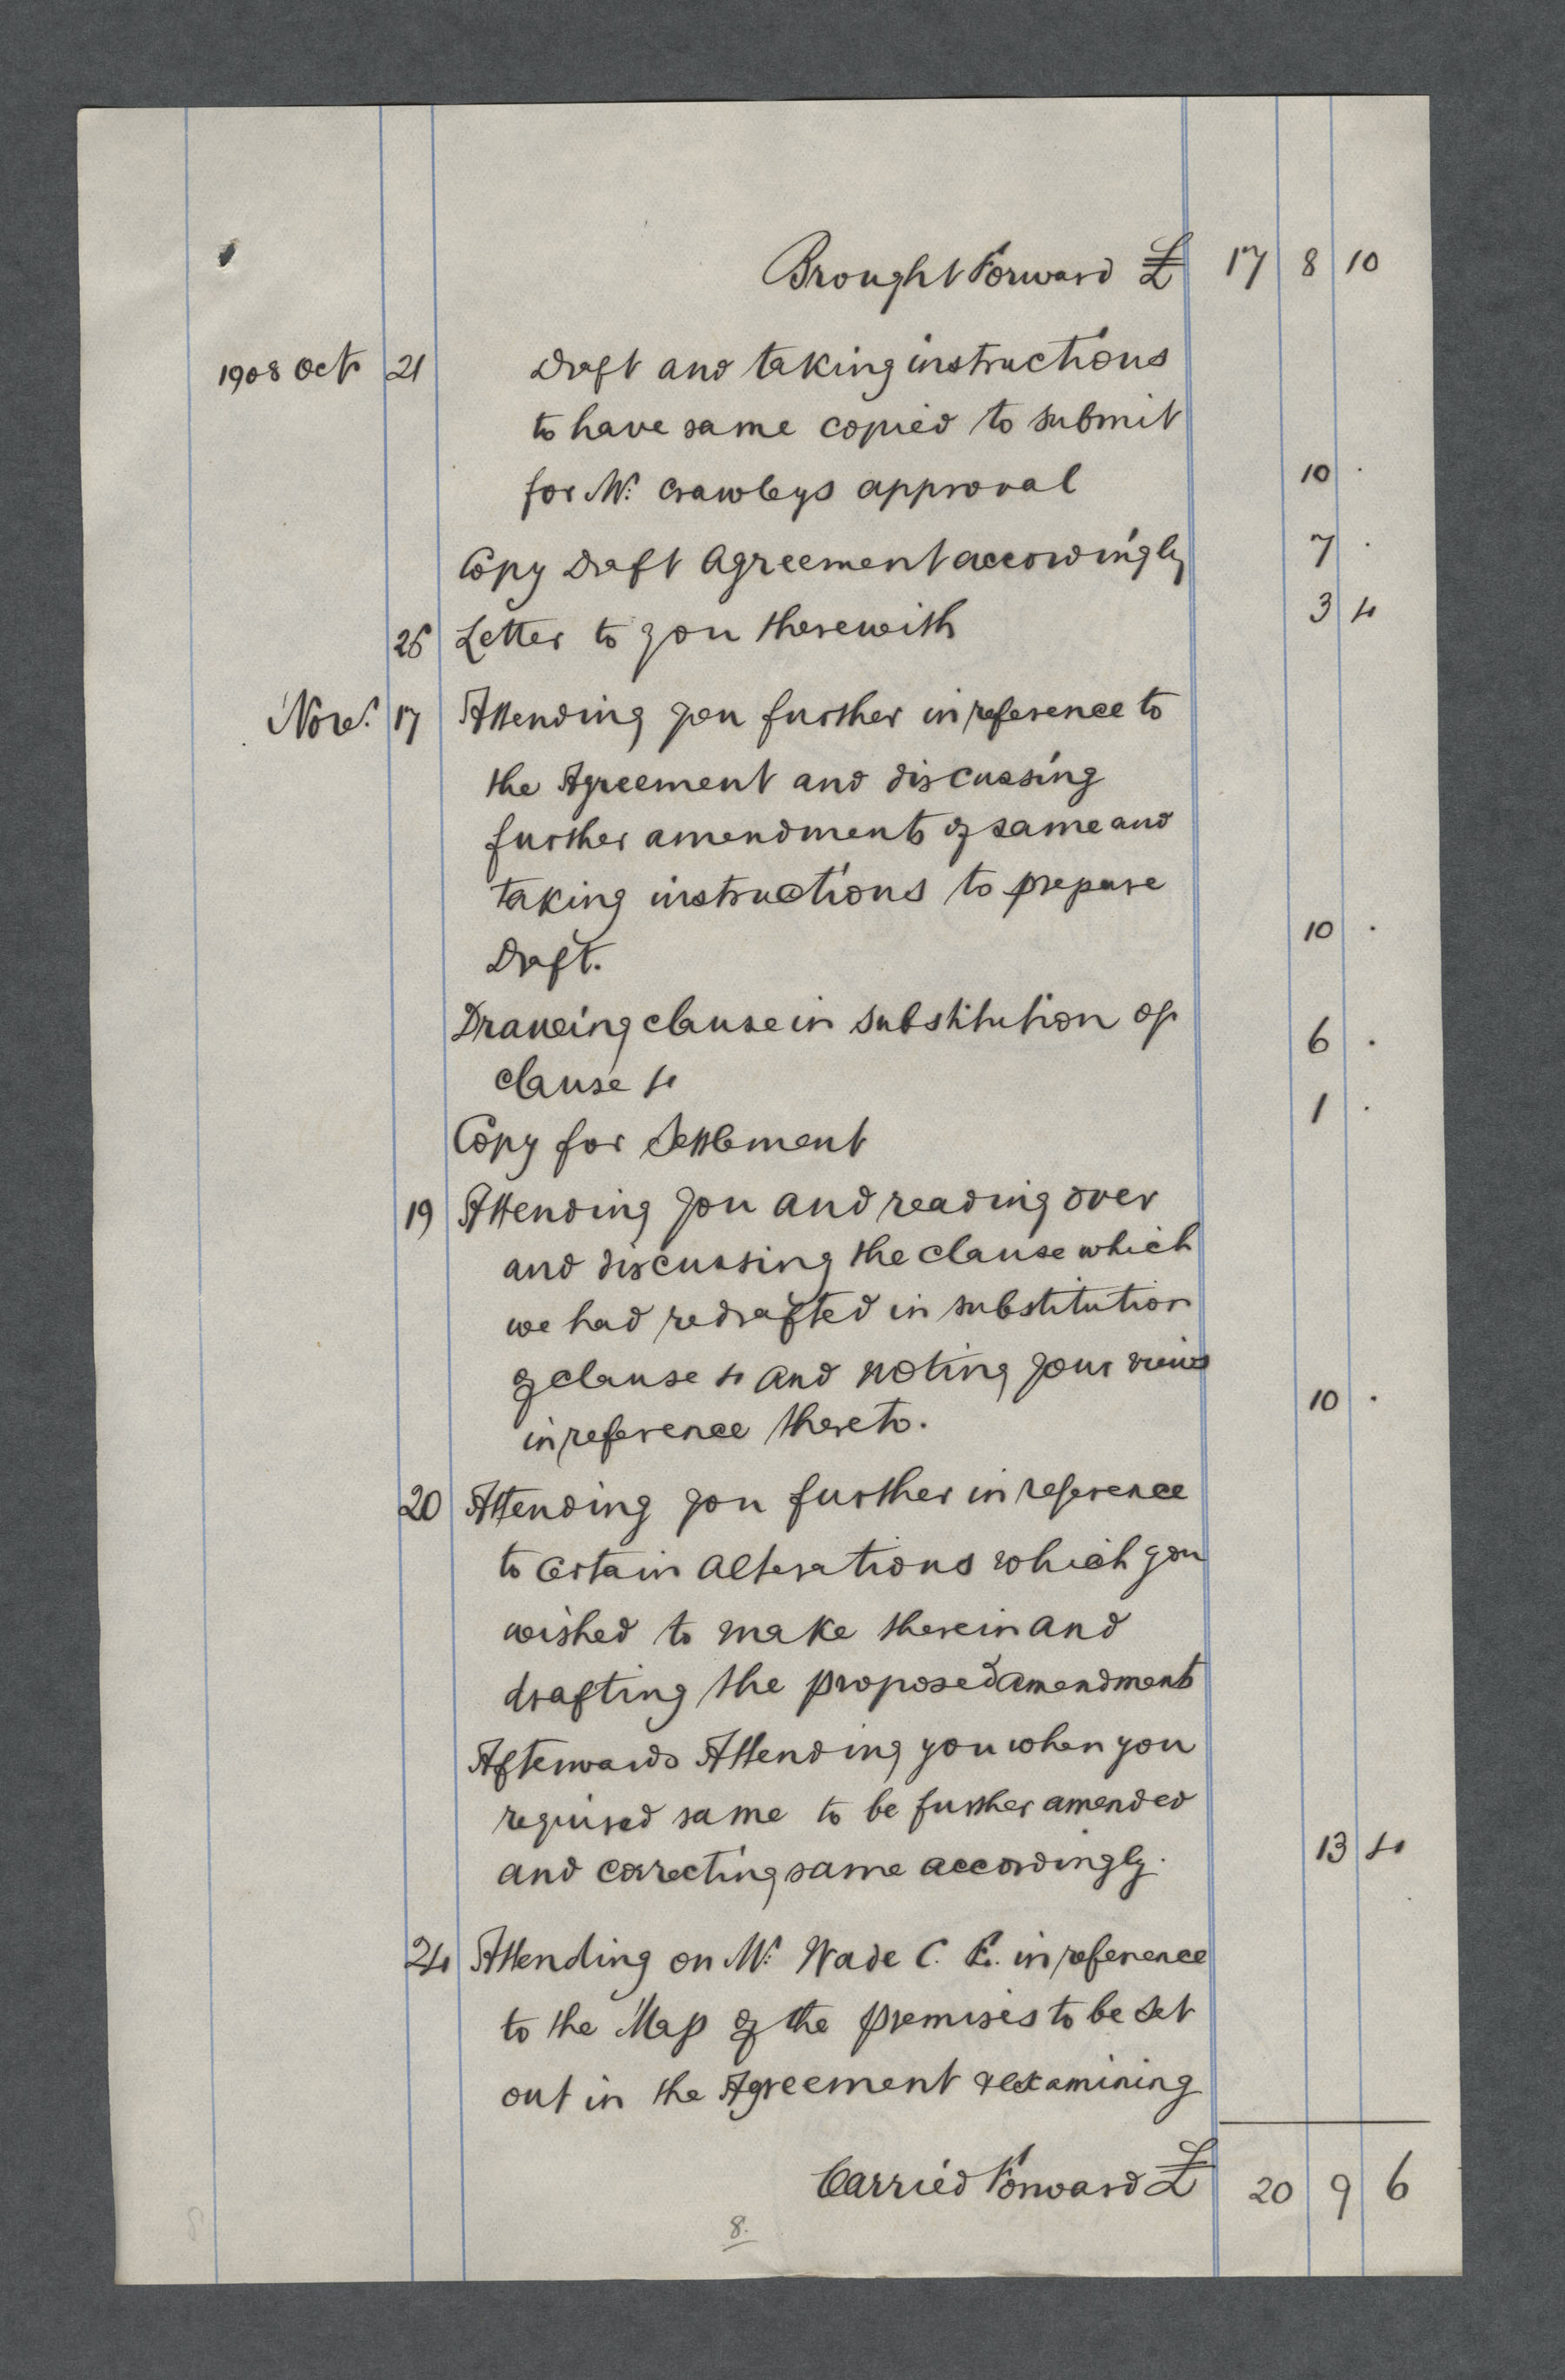 Brought Forward £ 17 8 10
1908 Oct 21 Draft and taking instructions
to have same copied to submit
for Mr. Crawleys approval 10 .
Copy Draft Agreement accordingly 7 .
26 Letter to you therewith 3 4
Novr. 17 Attending you further in reference to
the Agreement and discussing
further amendments of same and
taking instructions to prepare
Draft. 10 .
Drawing clause in substitution of
clause 4 6 .
Copy for Settlement 1 .
19 Attending you and reading over
and discussing the clause which
we had redrafted in substitution
of clause 4 and noting your views
in reference thereto. 10 .
20 Attending you further in reference
to certain alterations which you
wished to make therein and
drafting the proposed amendments
Afterwards Attending you when you
required same to be further amended
and correcting same accordingly. 13 4
24 Attending on Mr. Wade C. E. in reference
to the Map of the premises to be set
out in the Agreement & examining
Carried Forward £ 20 9 6
8.